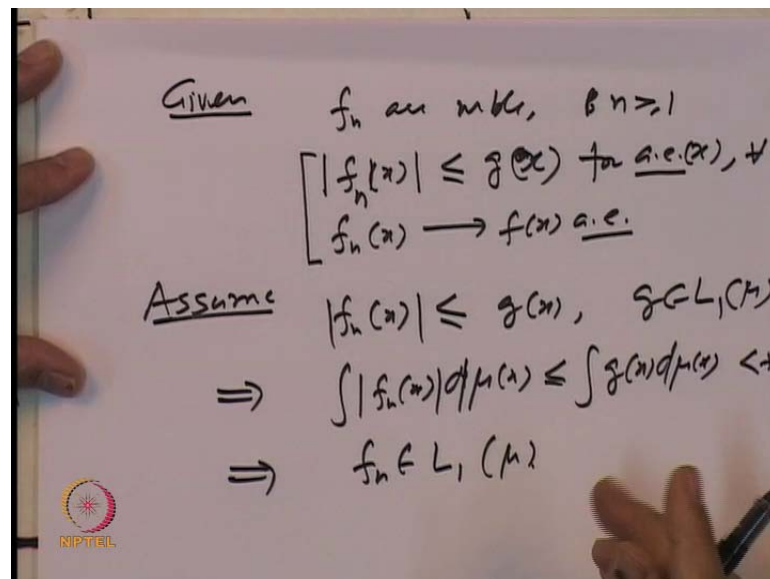 Given f_n are mble, & n ≥ 1
|f_n(x)| ≤ g(x) for a.e.(x), ∀
f_n(x) → f(x) a.e.
Assume |f_n(x)| ≤ g(x), g ∈ L_1(μ)
⇒ ∫|f_n(x)|dμ(x) ≤ ∫g(x)dμ(x) < +
⇒ f_n ∈ L_1(μ)
NPTEL